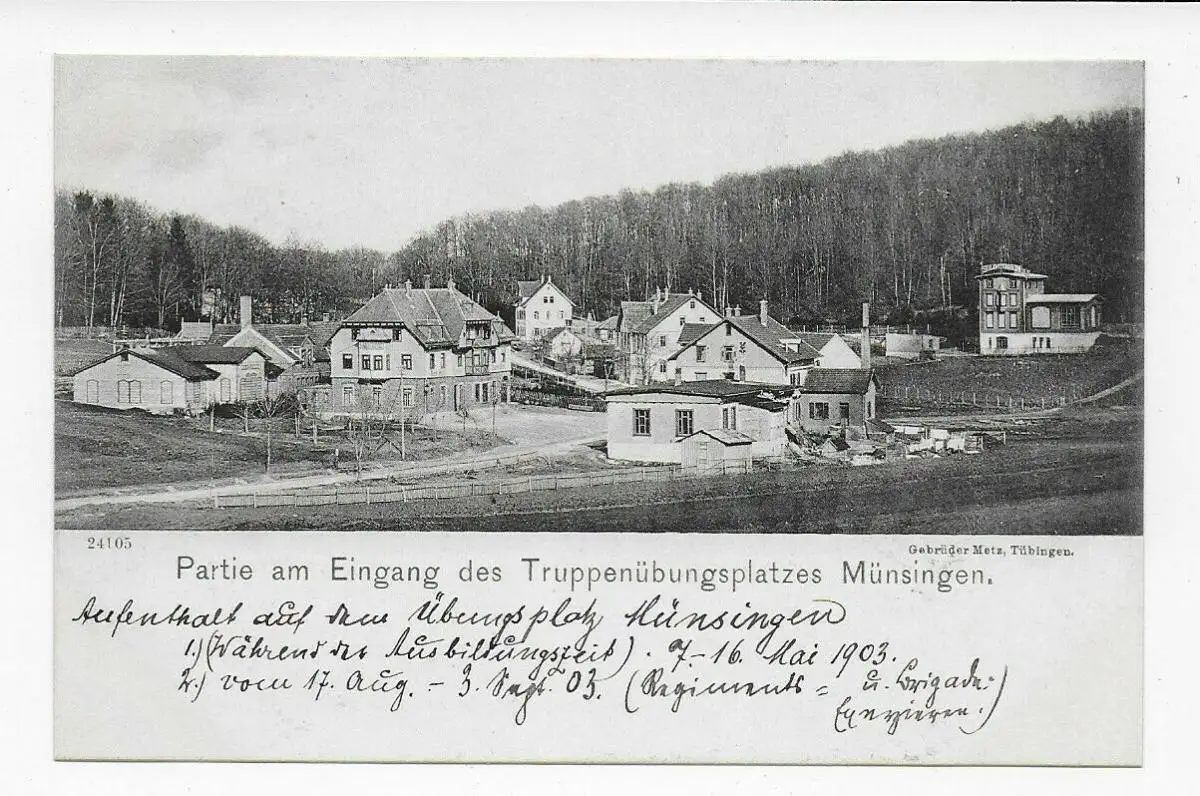 24105
Gebrüder Metz, Tübingen.
Partie am Eingang des Truppenübungsplatzes Münsingen.
Aufenthalt auf dem Übungsplatz Münsingen
1.) (Während der Ausbildungszeit). 7.-16. Mai 1903.
2.) vom 17. Aug. - 3. Sept. 03. (Regiments = u. Brigade-
Exerzieren.)